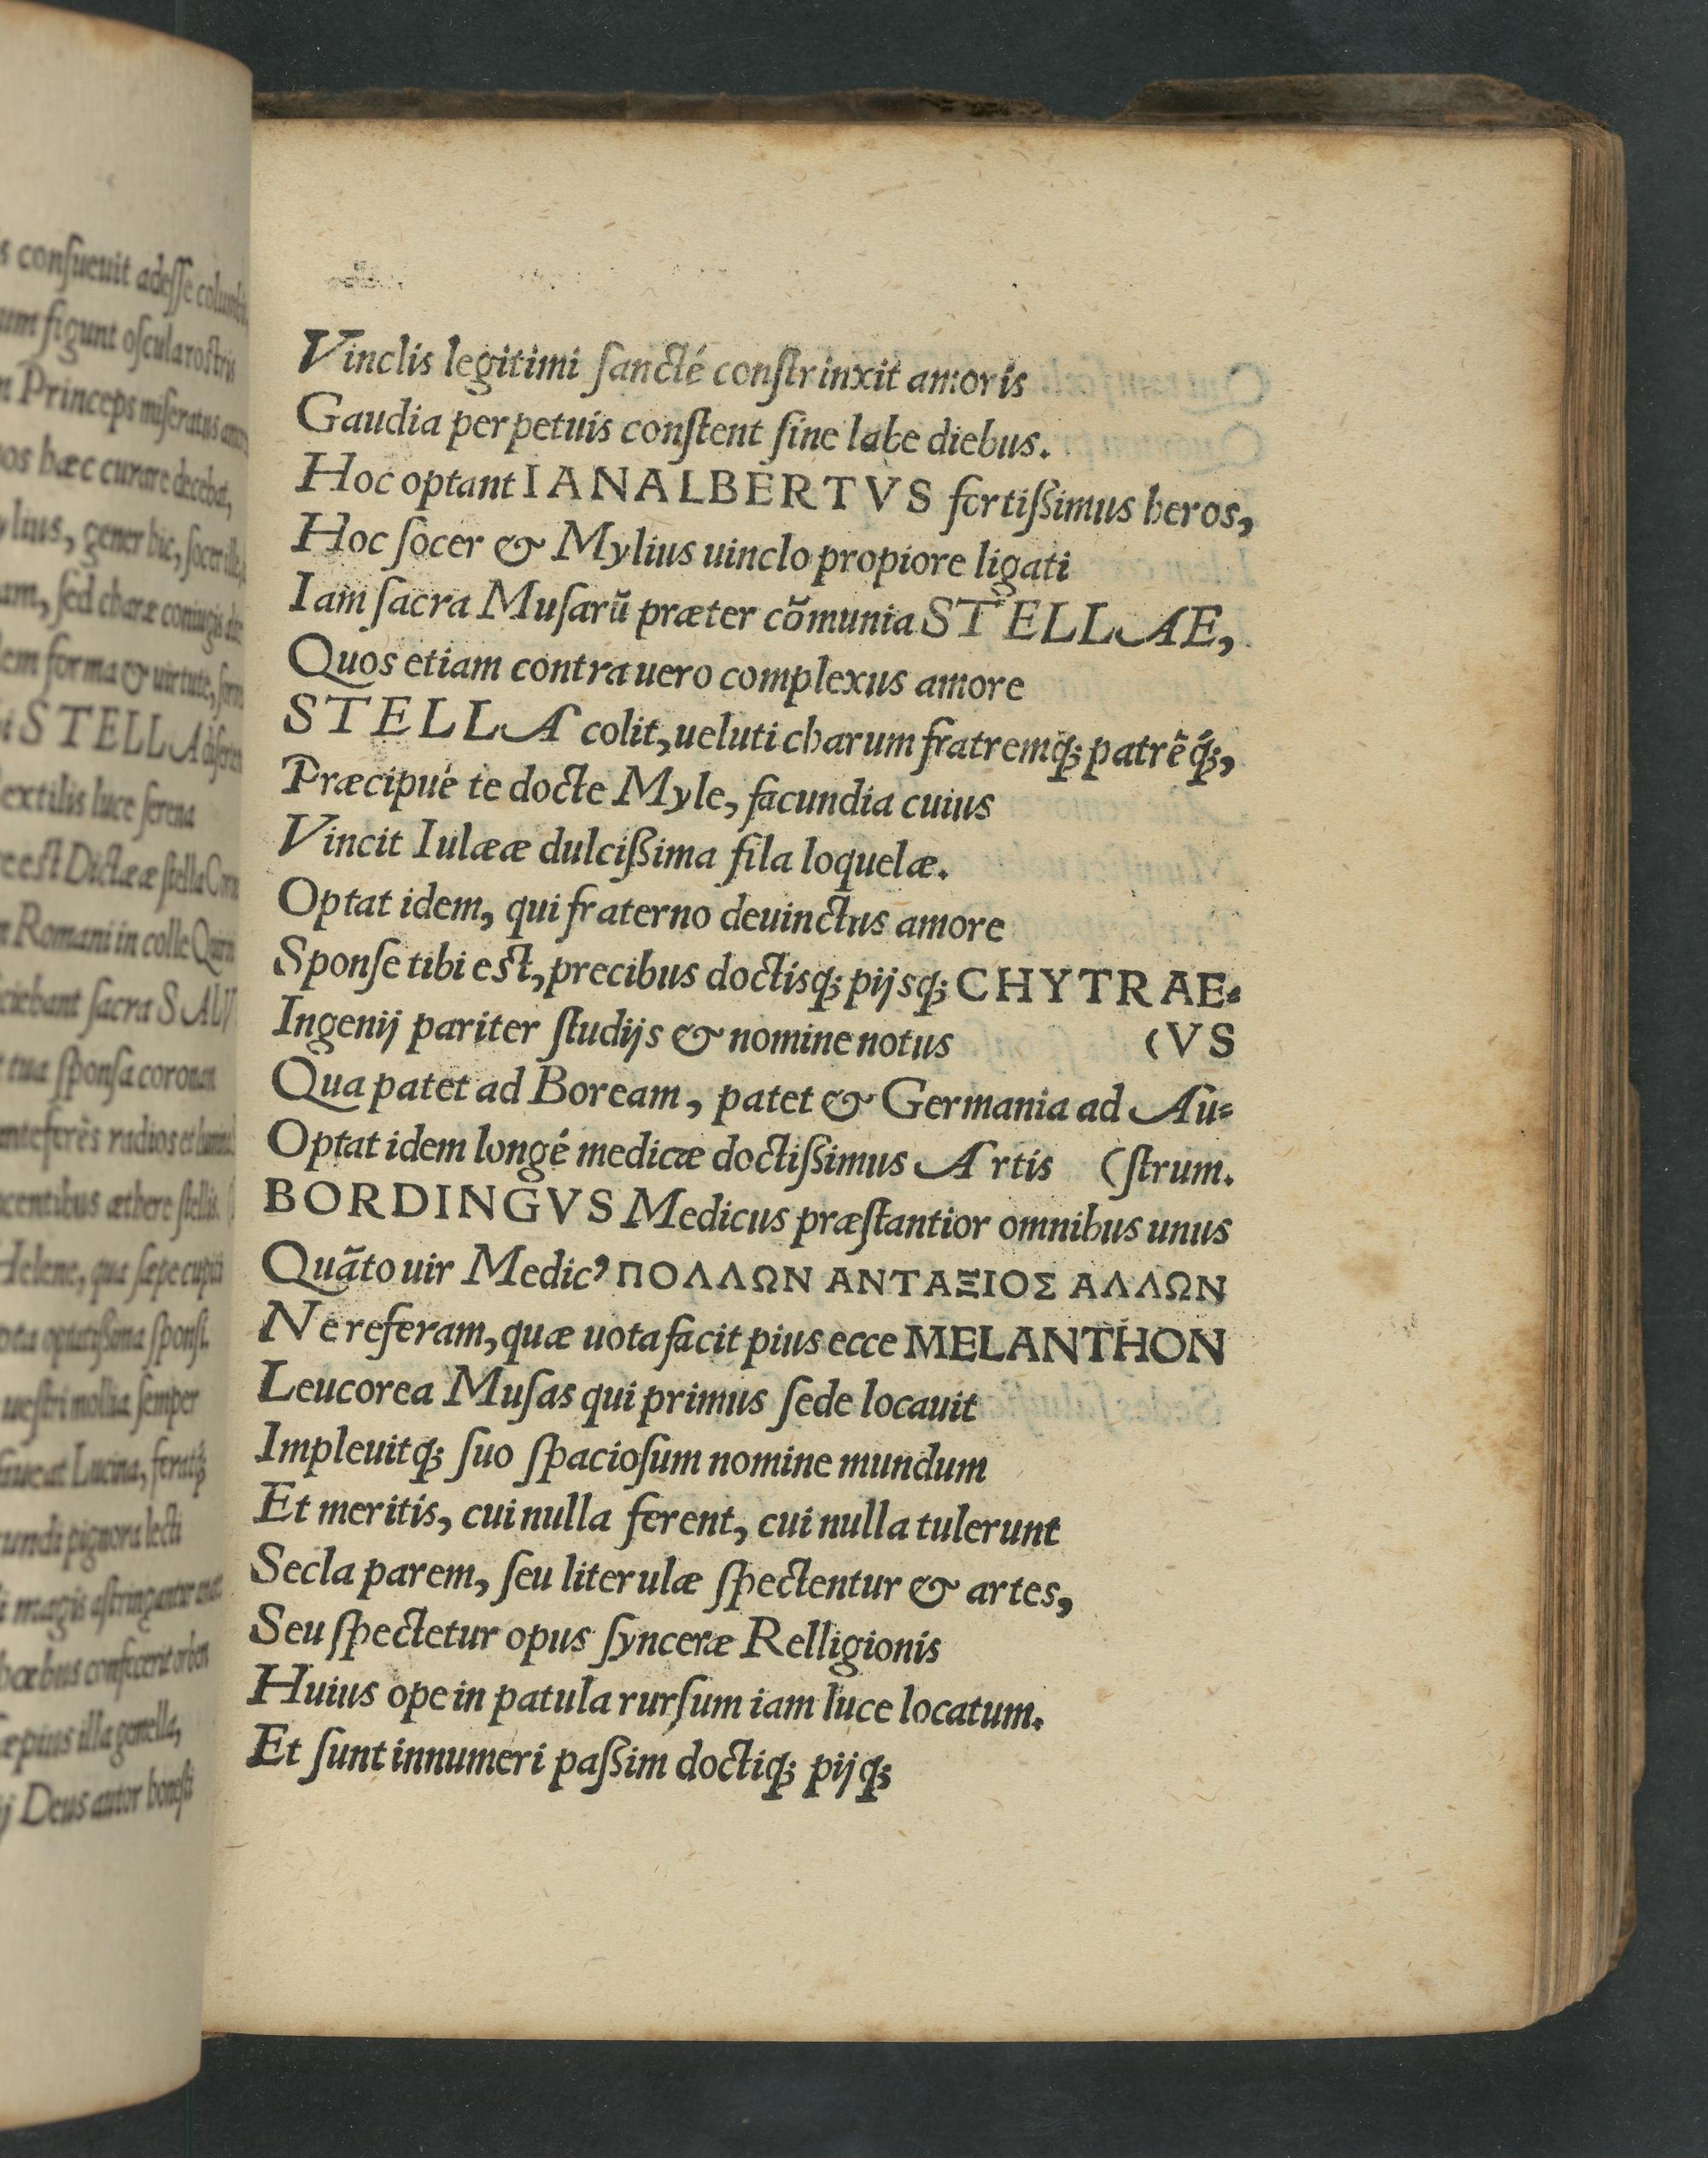 s consueuit adesse columbis
um figunt oscula rostris
n Princeps miseratus
os hæc curare decebat,
ylius, gener hic, socer ille,
am, sed charæ coniugis
em forma & uirtute,
t STELLA
extilis luce serena
e est Dictææ stella
n Romani in colle
ciebant sacra
t tua sponsa coronat
anteferēs radios et
centibus æthere stellis.
Helene, qua sæpe cupiti
ota optatissima sponsi.
uestri mollia semper
faueat Lucina, feratq́;
cundi pignora lecti
magis astringantur
hœbus confecerit orbem
sæpius illa gemella,
ij Deus autor honesti
Vinclis legitimi ſanctè conſtrinxit amoris
Gaudia perpetuis conſtent ſine labe diebus.
Hoc optant IANALBERTVS fortiſsimus heros,
Hoc ſocer & Mylius uinclo propiore ligati
Iam ſacra Muſarū præter cōmunia STELLAE,
Quos etiam contra uero complexus amore
STELLA colit, ueluti charum fratremq; patrēq́;,
Præcipué te docte Myle, facundia cuius
Vincit Iulææ dulciſsima fila loquelæ.
Optat idem, qui fraterno deuinctus amore
Sponſe tibi eſt, precibus doctisq; pijsq; CHYTRAE=
Ingenij pariter ſtudijs & nomine notus (VS
Qua patet ad Boream, patet & Germania ad Au=
Optat idem longé medicæ doctiſsimus Artis (ſtrum.
BORDINGVS Medicus præſtantior omnibus unus
Quāto uir Medicꝰ ΠΟΛΛΩΝ ΑΝΤΑΞΙΟΣ ΑΛΛΩΝ
Ne referam, quæ uota facit pius ecce MELANTHON
Leucorea Muſas qui primus ſede locauit
Impleuitq; ſuo ſpacioſum nomine mundum
Et meritis, cui nulla ferent, cui nulla tulerunt
Secla parem, ſeu literulæ ſpectentur & artes,
Seu ſpectetur opus ſynceræ Relligionis
Huius ope in patula rurſum iam luce locatum.
Et ſunt innumeri paſsim doctiq; pijq;